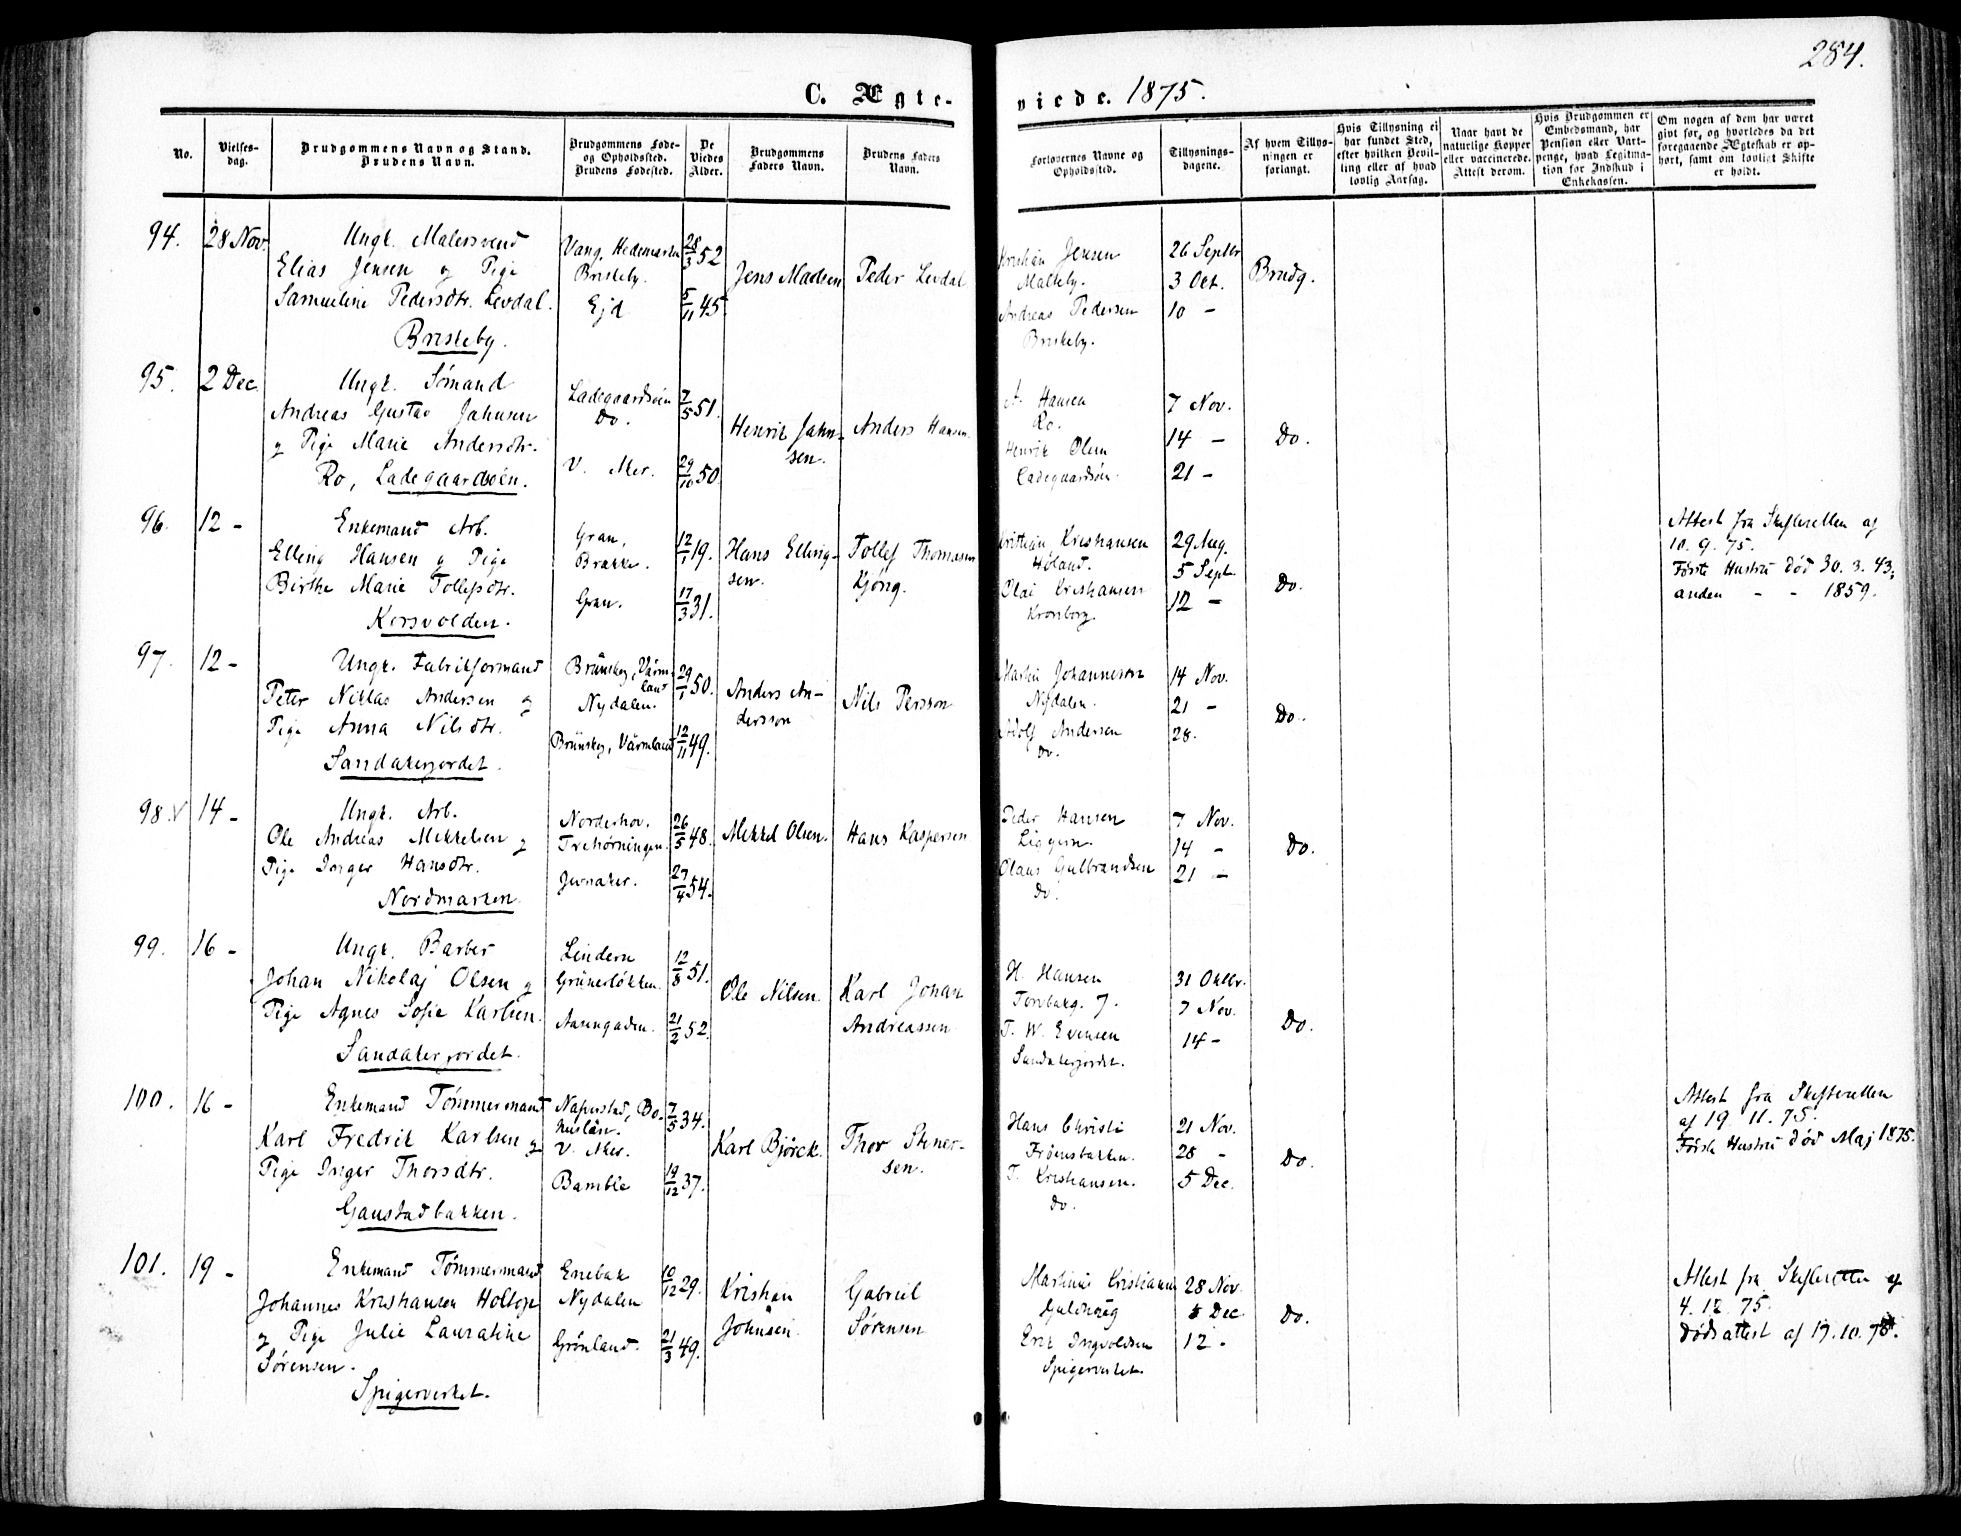 284.
C. Ægteviede. 1875.
No.
Vielses-
dag.
Brudgommens Navn og Stand.
Brudens Navn.
Brudgommens Føde-
og Opholdssted.
Brudens Fødested.
De
Viedes
Alder.
Brudgommens
Faders Navn.
Brudens Faders
Navn.
Forlovernes Navne og
Opholdssted.
Tillysnings-
dagene.
Af hvem Tillys-
ningen er
forlangt.
Hvis Tillysning ei
har fundet Sted,
efter hvilken Bevil-
ling eller af hvad
lovlig Aarsag.
Naar havt de
naturlige Kopper
eller vaccinerede.
Attest derom.
Hvis Brudgommen er
Embedsmand, har
Pension eller Vart-
penge, hvad Legitima-
tion for Indskud i
Enkekassen.
Om nogen af dem har været
givt før, og hvorledes da det
foregaaende Ægteskab er op-
hørt, samt om lovligt Skifte
er holdt.
94. 28 Nov.
Ungk. Malersvend
Elias Jensen og Pige
Samueline Pedersdtr. Levdal.
Briskeby.
Vang, Hedemarken
Briskeby.
Ejd
28/3 52
5/11 45
Jens Madsen
Peder Levdal
Kristian Jensen
Malteby.
Andreas Pedersen
Briskeby.
26 Septbr
3 Oct.
10 -
Brudg.
95. 2 Dec.
Ungk. Sømand
Andreas Gustav Jahnsen
og Pige Marie Andersdtr.
Ro, Ladegaardsøen.
Ladegaardsøen
Do.
V. Aker.
7/5 51.
29/10 50
Henrik Jahn-
sen.
Anders Hansen
A. Hansen
Ro.
Henrik Olsen
Ladegaardsøen.
7 Nov.
14 -
21 -
Do.
96. 12 -
Enkemand Arb.
Elling Hansen og Pige
Birthe Marie Tollefsdtr.
Korsvolden.
Gran,
Brække.
Gran.
12/1 19.
17/3 31.
Hans Elling-
sen.
Tollef Thomassen
Kjøng.
Kristian Kristiansen
Høland.
Olai Kristiansen
Kronborg.
29 Aug.
5 Sept.
12 -
Do.
Attest fra Skifteretten af
10. 9. 75.
Første Hustru død 30. 3. 43,
anden - - 1859.
97. 12 -
Ungk. Fabrikformand
Peter Niklas Andersen og
Pige Anna Nilsdtr.
Sandakerjordet.
Brunskog, Värm-
land
Nydalen.
Brunskog, Värmland
29/1 50.
12/11 49.
Anders An-
dersson
Nils Persson
Martin Johannesen
Nydalen.
Adolf Andersen
do.
14 Nov.
21 -
28.
Do.
98. V 14 -
Ungk. Arb.
Ole Andreas Mikkelsen og
Pige Inger Hansdtr.
Nordmarken
Norderhov.
Trehørningen.
Jevnaker.
26/5 48.
27/4 54.
Mikkel Olsen.
Hans Kaspersen
Peder Hansen
Liggern.
Olaus Gulbrandsen
do.
7 Nov.
14 -
21 -
Do.
99. 16 -
Ungk. Barber
Johan Nikolaj Olsen og
Pige Agnes Sofie Karlsen.
Sandakerjordet.
Lindern
Grünerløkken.
Aasengaden.
12/8 51.
21/2 52.
Ole Nilsen.
Karl Johan
Andreassen
H. Hansen
Torvbakg. 7.
T. W. Evensen
Sandakerjordet.
31 Oktbr.
7 Nov.
14 -
Do.
100. 16 -
Enkemand Tømmermand
Karl Fredrik Karlsen og
Pige Inger Thorsdtr.
Gaustadbakken.
Naverstad, Bo-
huslän.
V. Aker.
Bamble
7/5 34.
19/12 37.
Karl Bjørck.
Thor Stener-
sen.
Hans Christi
Frøensbakken.
T. Kristiansen.
do.
21 Nov.
28 -
5 Dec.
Do.
Attest fra Skifteretten
af 19. 11. 75.
Første Hustru død Maj 1875.
101. 19 -
Enkemand Tømmermand
Johannes Kristiansen Holtop
og Pige Julie Lauratine
Sørensen.
Spigerverket.
Enebak
Nydalen
Grønland.
10/12 29.
21/3 49.
Kristian
Johnsen.
Gabriel
Sørensen
Martinius Kristiansen
Guldhaug
Erik Ingvoldsen
Spigerverket.
28 Nov.
5 Dec.
12 -
Do.
Attest fra Skifteretten af
4. 12. 75.
Dødsattest af 19. 10. 75.